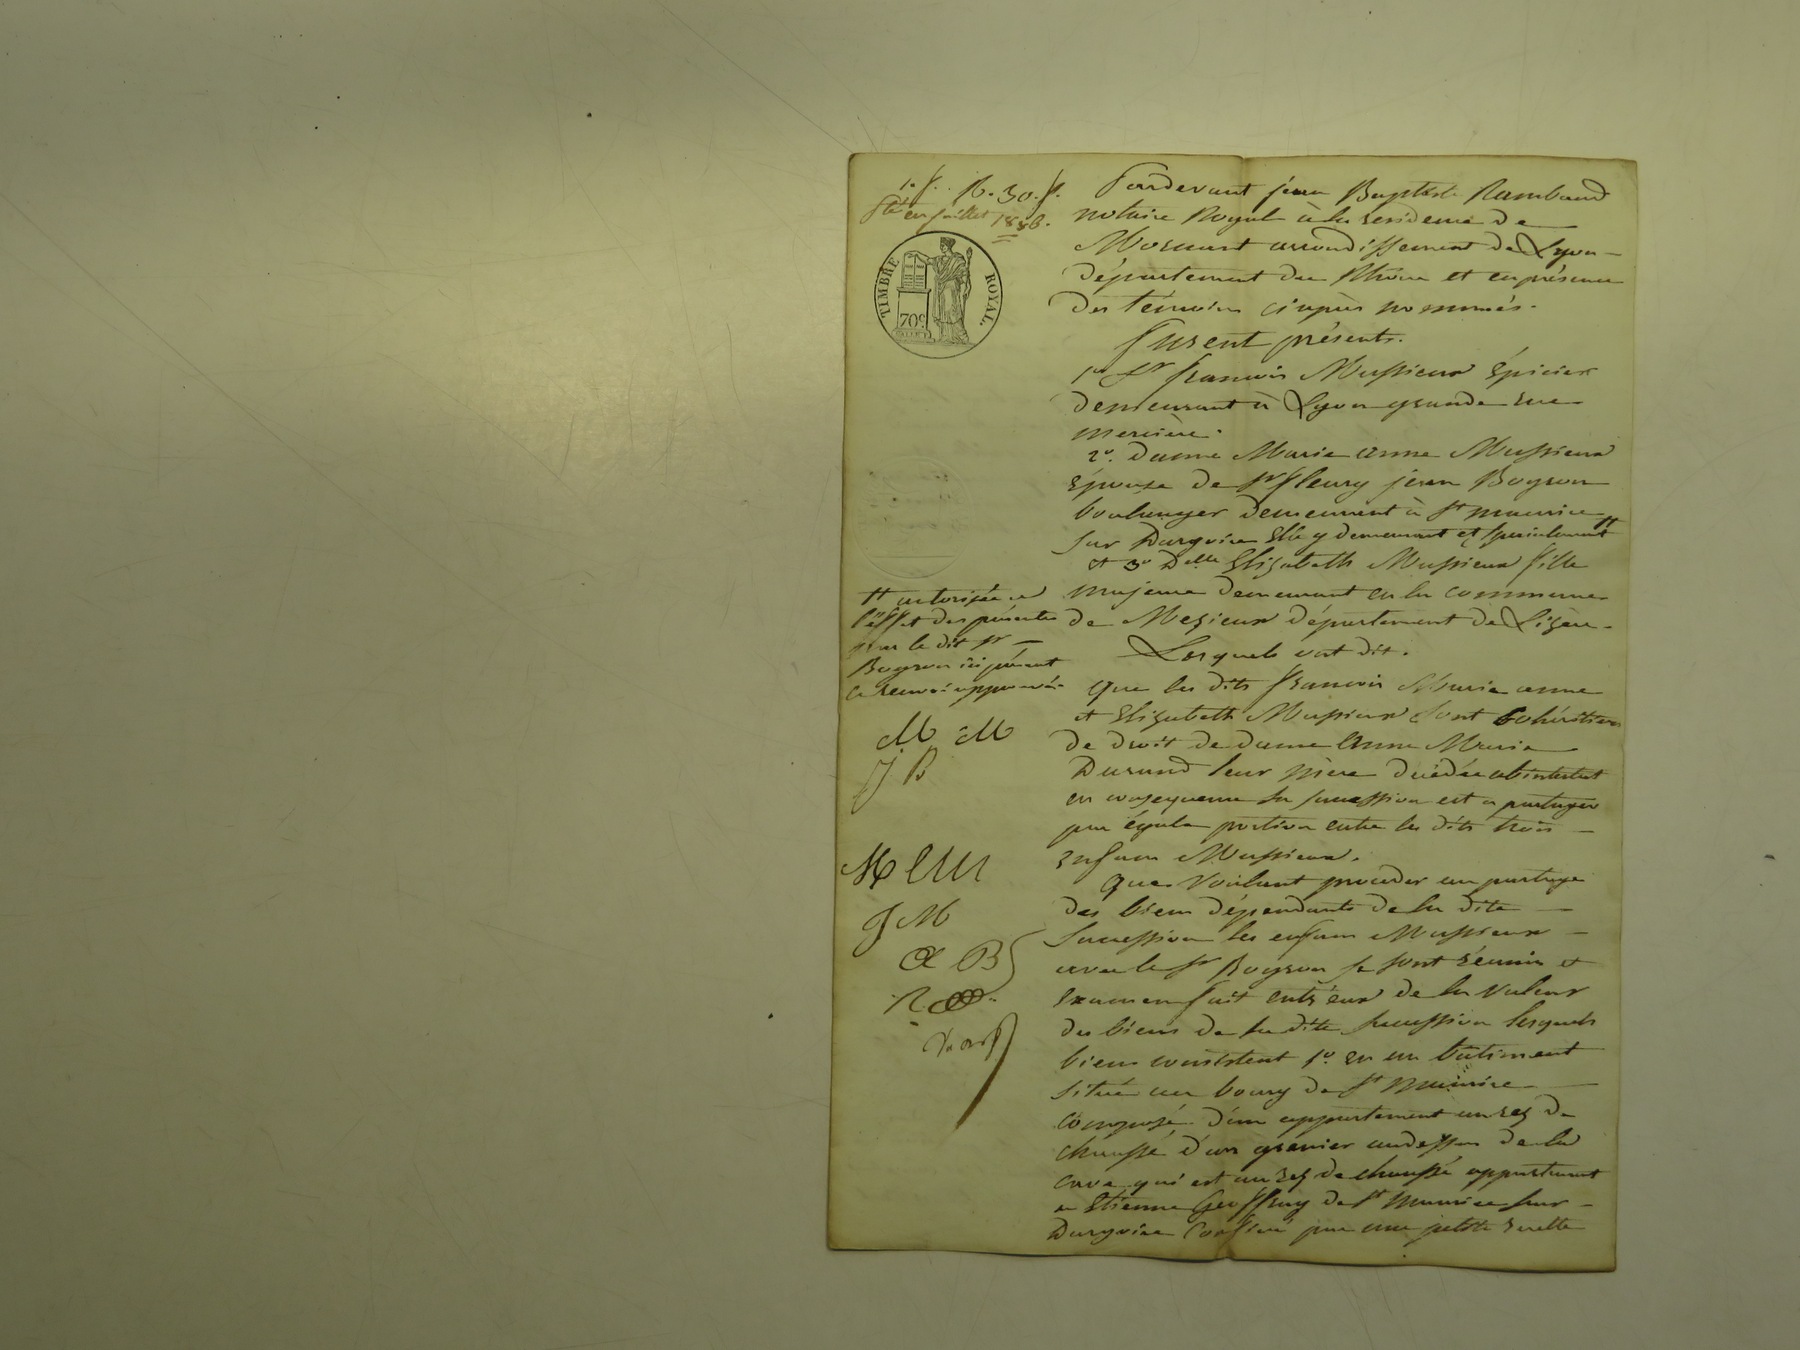 1. f. R. 30. f.
en juillet 1836.
TIMBRE ROYAL.
70c
Pardevant jean Baptiste Rambaud
notaire Royal à la residence de
Mornant arrondissement de Lyon
département du Rhône et en présence
des témoins ciaprès nommés.
furent présents.
1º Sr francois Mussieux Epicier
demeurant à Lyon grande rue
merciere.
2º. dame Marie anne Mussieux
Epouse de Sr fleury jean Boyron
boulanger demeurant à St maurice
sur Dargoire Elle y demeurant et specialement #
et 3º Delle Elizabeth Mussieux fille
majeure demeurant en la commune
de Mezieux département de Lizère.
Lesquels ont dit.
que les dits francois Marie anne
et Elizabeth Mussieux sont Cohéritiers
de droit de dame anne Marie
Durand leur mère décédée abintestat
en conséquence sa succession est a partager
par égale portion entre les dits trois
enfans Mussieux.
Que Voulant proceder au partage
des biens dépendants de la dite
Succession les enfans Mussieux
avec le Sr Boyron se sont réunis et
Examen fait entr'eux de la Valeur
des biens de la dite Succession lesquels
biens consistent 1º en un bâtiment
situé au bourg de St maurice
composé d'un appartement au rez de
chaussé d'un grenier audessus de la
cave qui est au rez de chaussé appartenant
a Etienne Geoffray de St Maurice sur
Dargoire Confiné par une petite ruelle
# autorisée a
l'effet des présentes
par le dit Sr
Boyron ici présent
ce renvoi approuvé.
M M
J B
M
J M
B
R